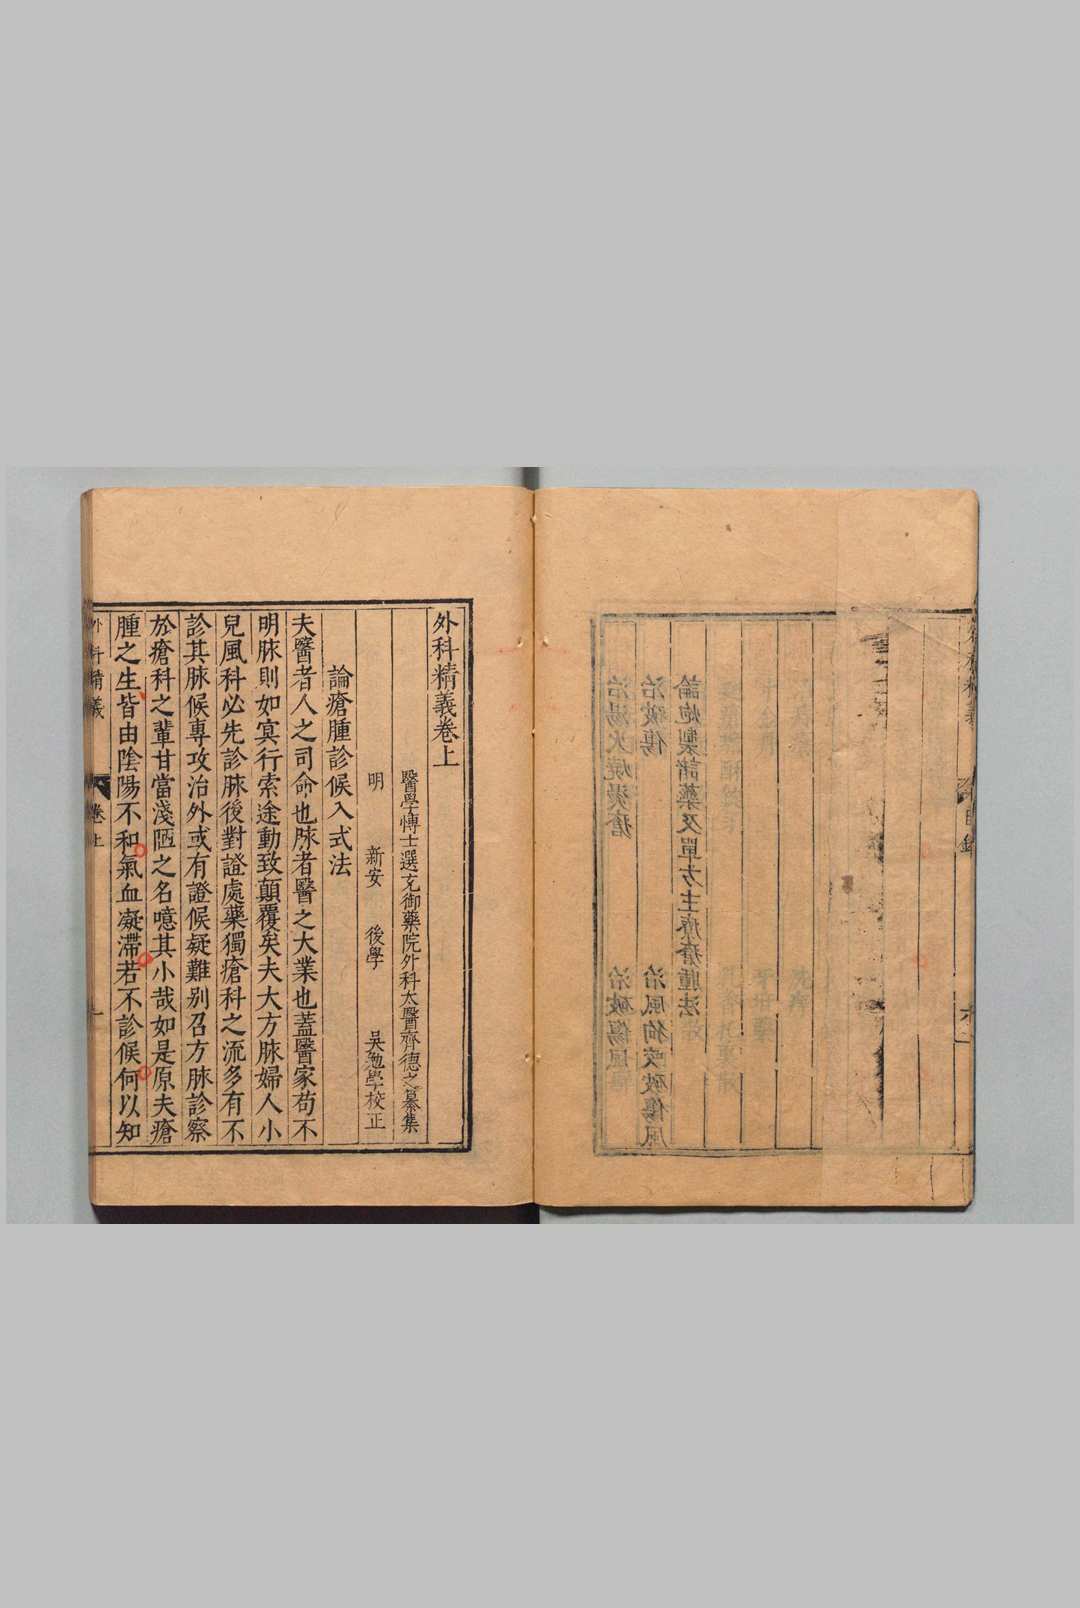 外科精義
論炮製諸藥及單方主療瘡腫法
治破傷　治風狗咬破傷風
治湯火燒燙瘡　治破傷風
外科精義卷上
醫學博士選充御藥院外科太醫齊德之纂集
明　新安　後學　吳勉學校正
論瘡腫診候入式法
夫醫者人之司命也脉者醫之大業也蓋醫家苟不
明脉則如冥行索途動致顛覆矣夫大方脉婦人小
兒風科必先診脉後對證處藥獨瘡科之流多有不
診其脉候專攻治外或有證候疑難别召方脉診察
於瘡科之輩甘當淺陋之名噫其小哉如是原夫瘡
腫之生皆由陰陽不和氣血凝滯若不診候何以知
外科精義　卷上